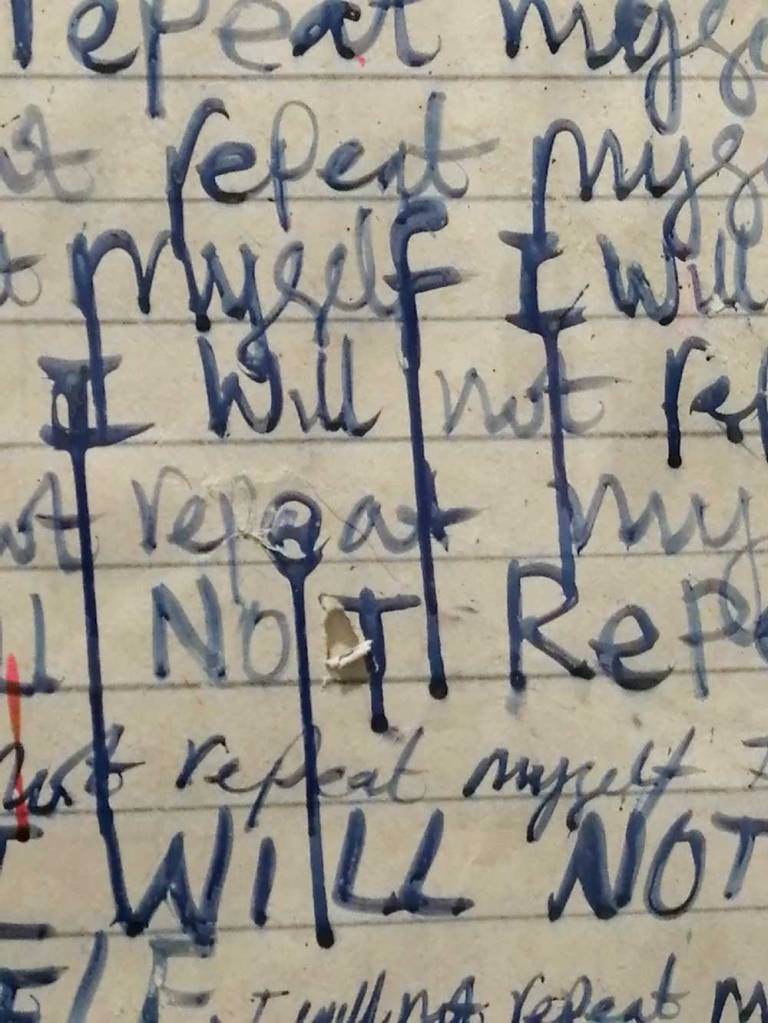 repeat myse
repeat myse
myself I Will
I Will not rep
not repeat my
NOT Repe
not repeat myself
I WILL NOT
ELF. I will not repeat m